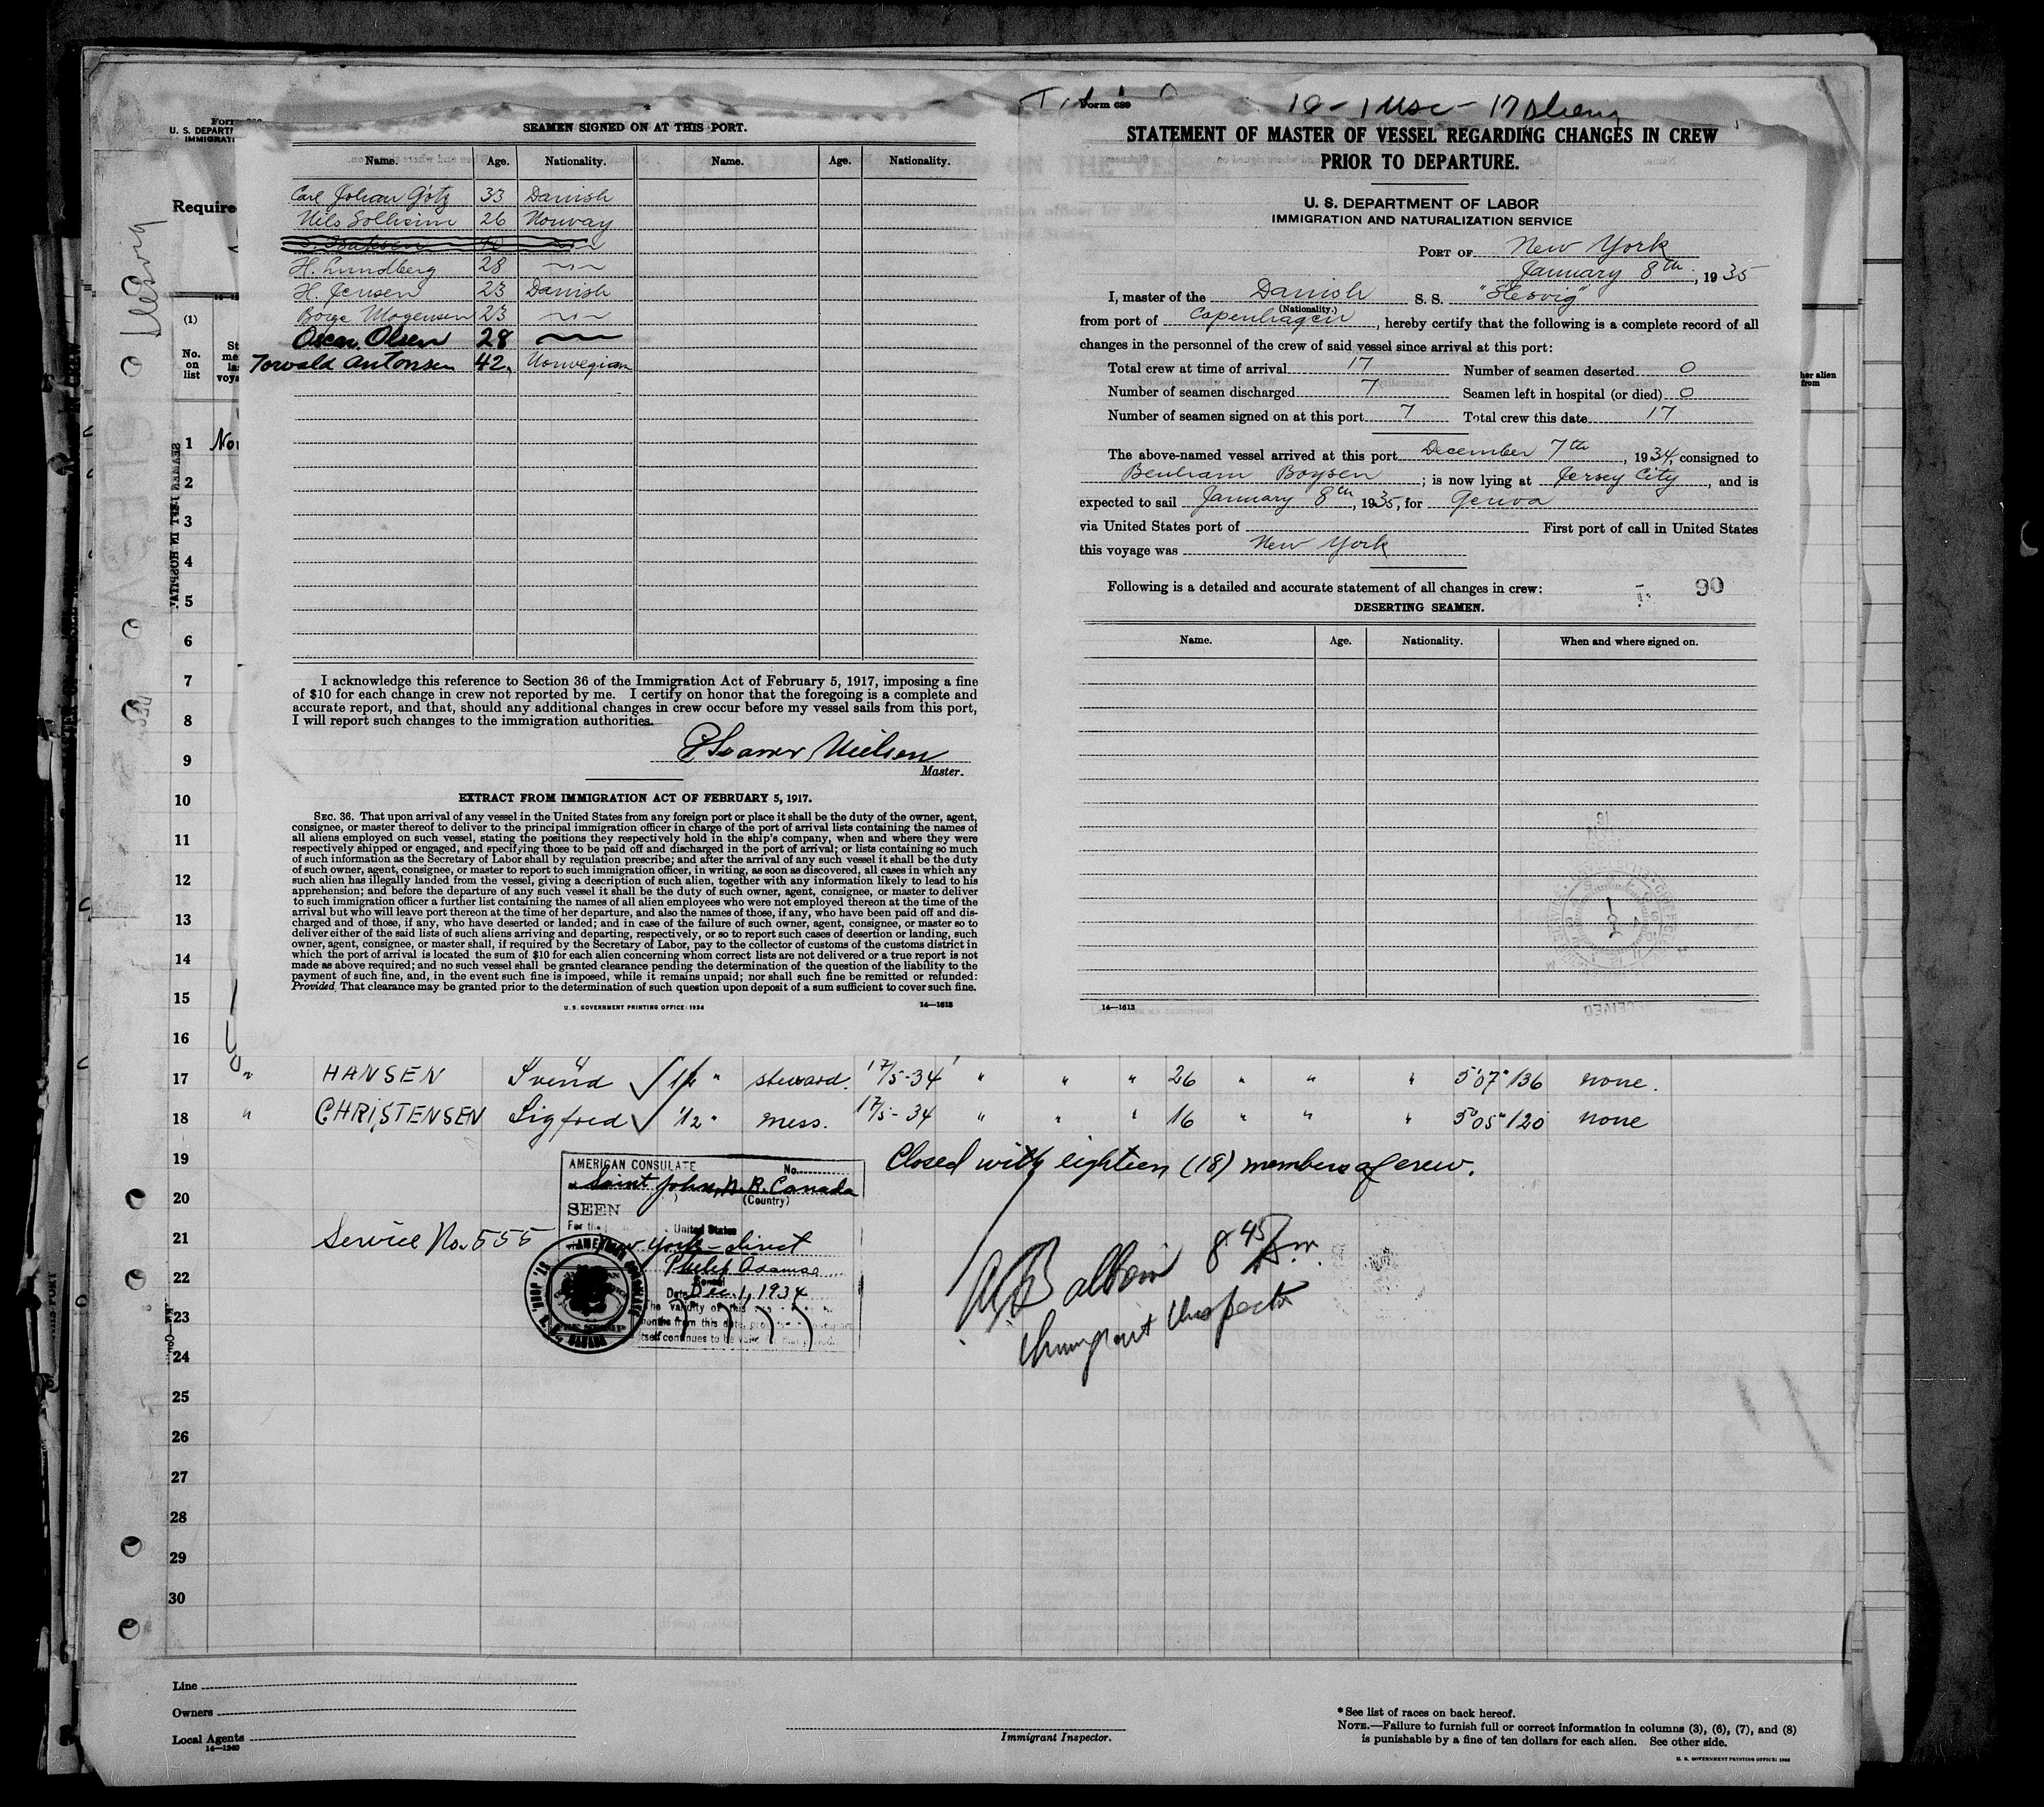 SEAMEN SIGNED ON AT THIS PORT.
Name. Age. Nationality. Name. Age. Nationality.
Carl Johan Götz 33 Danish
Nils Solheim 26 Norway
H. Lundberg 28 〃
H. Jensen 23 Danish
Börge Mogensen 23 〃
Oscar Olsen 28 〃
Torvald Antonsen 42. Norwegian
I acknowledge this reference to Section 36 of the Immigration Act of February 5, 1917, imposing a fine
of $10 for each change in crew not reported by me. I certify on honor that the foregoing is a complete and
accurate report, and that, should any additional changes in crew occur before my vessel sails from this port,
I will report such changes to the immigration authorities.
Nielsen
Master.
EXTRACT FROM IMMIGRATION ACT OF FEBRUARY 5, 1917.
SEC. 36. That upon arrival of any vessel in the United States from any foreign port or place it shall be the duty of the owner, agent,
consignee, or master thereof to deliver to the principal immigration officer in charge of the port of arrival lists containing the names of
all aliens employed on such vessel, stating the positions they respectively hold in the ship's company, when and where they were
respectively shipped or engaged, and specifying those to be paid off and discharged in the port of arrival; or lists containing so much
of such information as the Secretary of Labor shall by regulation prescribe; and after the arrival of any such vessel it shall be the duty
of such owner, agent, consignee, or master to report to such immigration officer, in writing, as soon as discovered, all cases in which any
such alien has illegally landed from the vessel, giving a description of such alien, together with any information likely to lead to his
apprehension; and before the departure of any such vessel it shall be the duty of such owner, agent, consignee, or master to deliver
to such immigration officer a further list containing the names of all alien employees who were not employed thereon at the time of the
arrival but who will leave port thereon at the time of her departure, and also the names of those, if any, who have been paid off and dis-
charged and of those, if any, who have deserted or landed; and in case of the failure of such owner, agent, consignee, or master so to
deliver either of the said lists of such aliens arriving and departing, respectively, or so to report such cases of desertion or landing, such
owner, agent, consignee, or master shall, if required by the Secretary of Labor, pay to the collector of customs of the customs district in
which the port of arrival is located the sum of $10 for each alien concerning whom correct lists are not delivered or a true report is not
made as above required; and no such vessel shall be granted clearance pending the determination of the question of the liability to the
payment of such fine, and, in the event such fine is imposed, while it remains unpaid; nor shall such fine be remitted or refunded:
Provided, That clearance may be granted prior to the determination of such question upon deposit of a sum sufficient to cover such fine.
U. S. GOVERNMENT PRINTING OFFICE: 1934 14—1613
Form 689
STATEMENT OF MASTER OF VESSEL REGARDING CHANGES IN CREW
PRIOR TO DEPARTURE.
U. S. DEPARTMENT OF LABOR
IMMIGRATION AND NATURALIZATION SERVICE
PORT OF New York
January 8th, 1935
I, master of the Danish S. S. "Slesvig"
(Nationality.)
from port of Copenhagen, hereby certify that the following is a complete record of all
changes in the personnel of the crew of said vessel since arrival at this port:
Total crew at time of arrival 17 Number of seamen deserted 0
Number of seamen discharged 7 Seamen left in hospital (or died) 0
Number of seamen signed on at this port 7 Total crew this date 17
The above-named vessel arrived at this port December 7th, 1934, consigned to
Benham Boysen; is now lying at Jersey City, and is
expected to sail January 8th, 1935, for Genua
via United States port of First port of call in United States
this voyage was New York
Following is a detailed and accurate statement of all changes in crew: 90
DESERTING SEAMEN.
Name. Age. Nationality. When and where signed on.
14—1613
U. S. DEPARTM
IMMIGRATI
Require
Slesvig
(1)
No. on list
her alien
from
1 Nor
2
3
4
5
6
7
8
9
10
11
12
13
14
15
16
17 " HANSEN Svend 1½ " steward. 17/5-34 " " " 26 " " " 5'07" 136 none.
18 " CHRISTENSEN Sigfred 1/2 " mess. 17/5-34 " " " 16 " " " 5'05" 120 none
19 Closed with eighteen (18) members of crew.
AMERICAN CONSULATE No.
Saint John, N.B. Canada
20 (Country)
SEEN
For the United States
21 Service No. 555
York - direct
Philip Adams
22 Consul
Date Dec. 1, 1934
23 The validity of this
months from this date, pro
itself continues to be valid
8 45 Am
Immigrant Inspector
24
25
26
27
28
29
30
Line
Owners
Local Agents
14—1240
Immigrant Inspector.
*See list of races on back hereof.
NOTE.—Failure to furnish full or correct information in columns (3), (6), (7), and (8)
is punishable by a fine of ten dollars for each alien. See other side.
U. S. GOVERNMENT PRINTING OFFICE: 1932